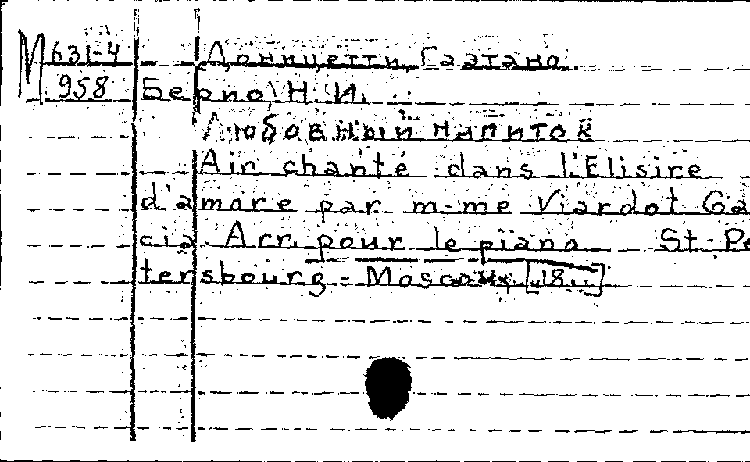 М 631-4 Доницетти, Гаэтано.
958 Берно, Н. И.
Любовный напиток
Air chanté dans l'Elisire
d'amore par m-me Viardot Ga
cia. Arr. pour le piano St-Pe
tersbourg - Moscou, [18..]